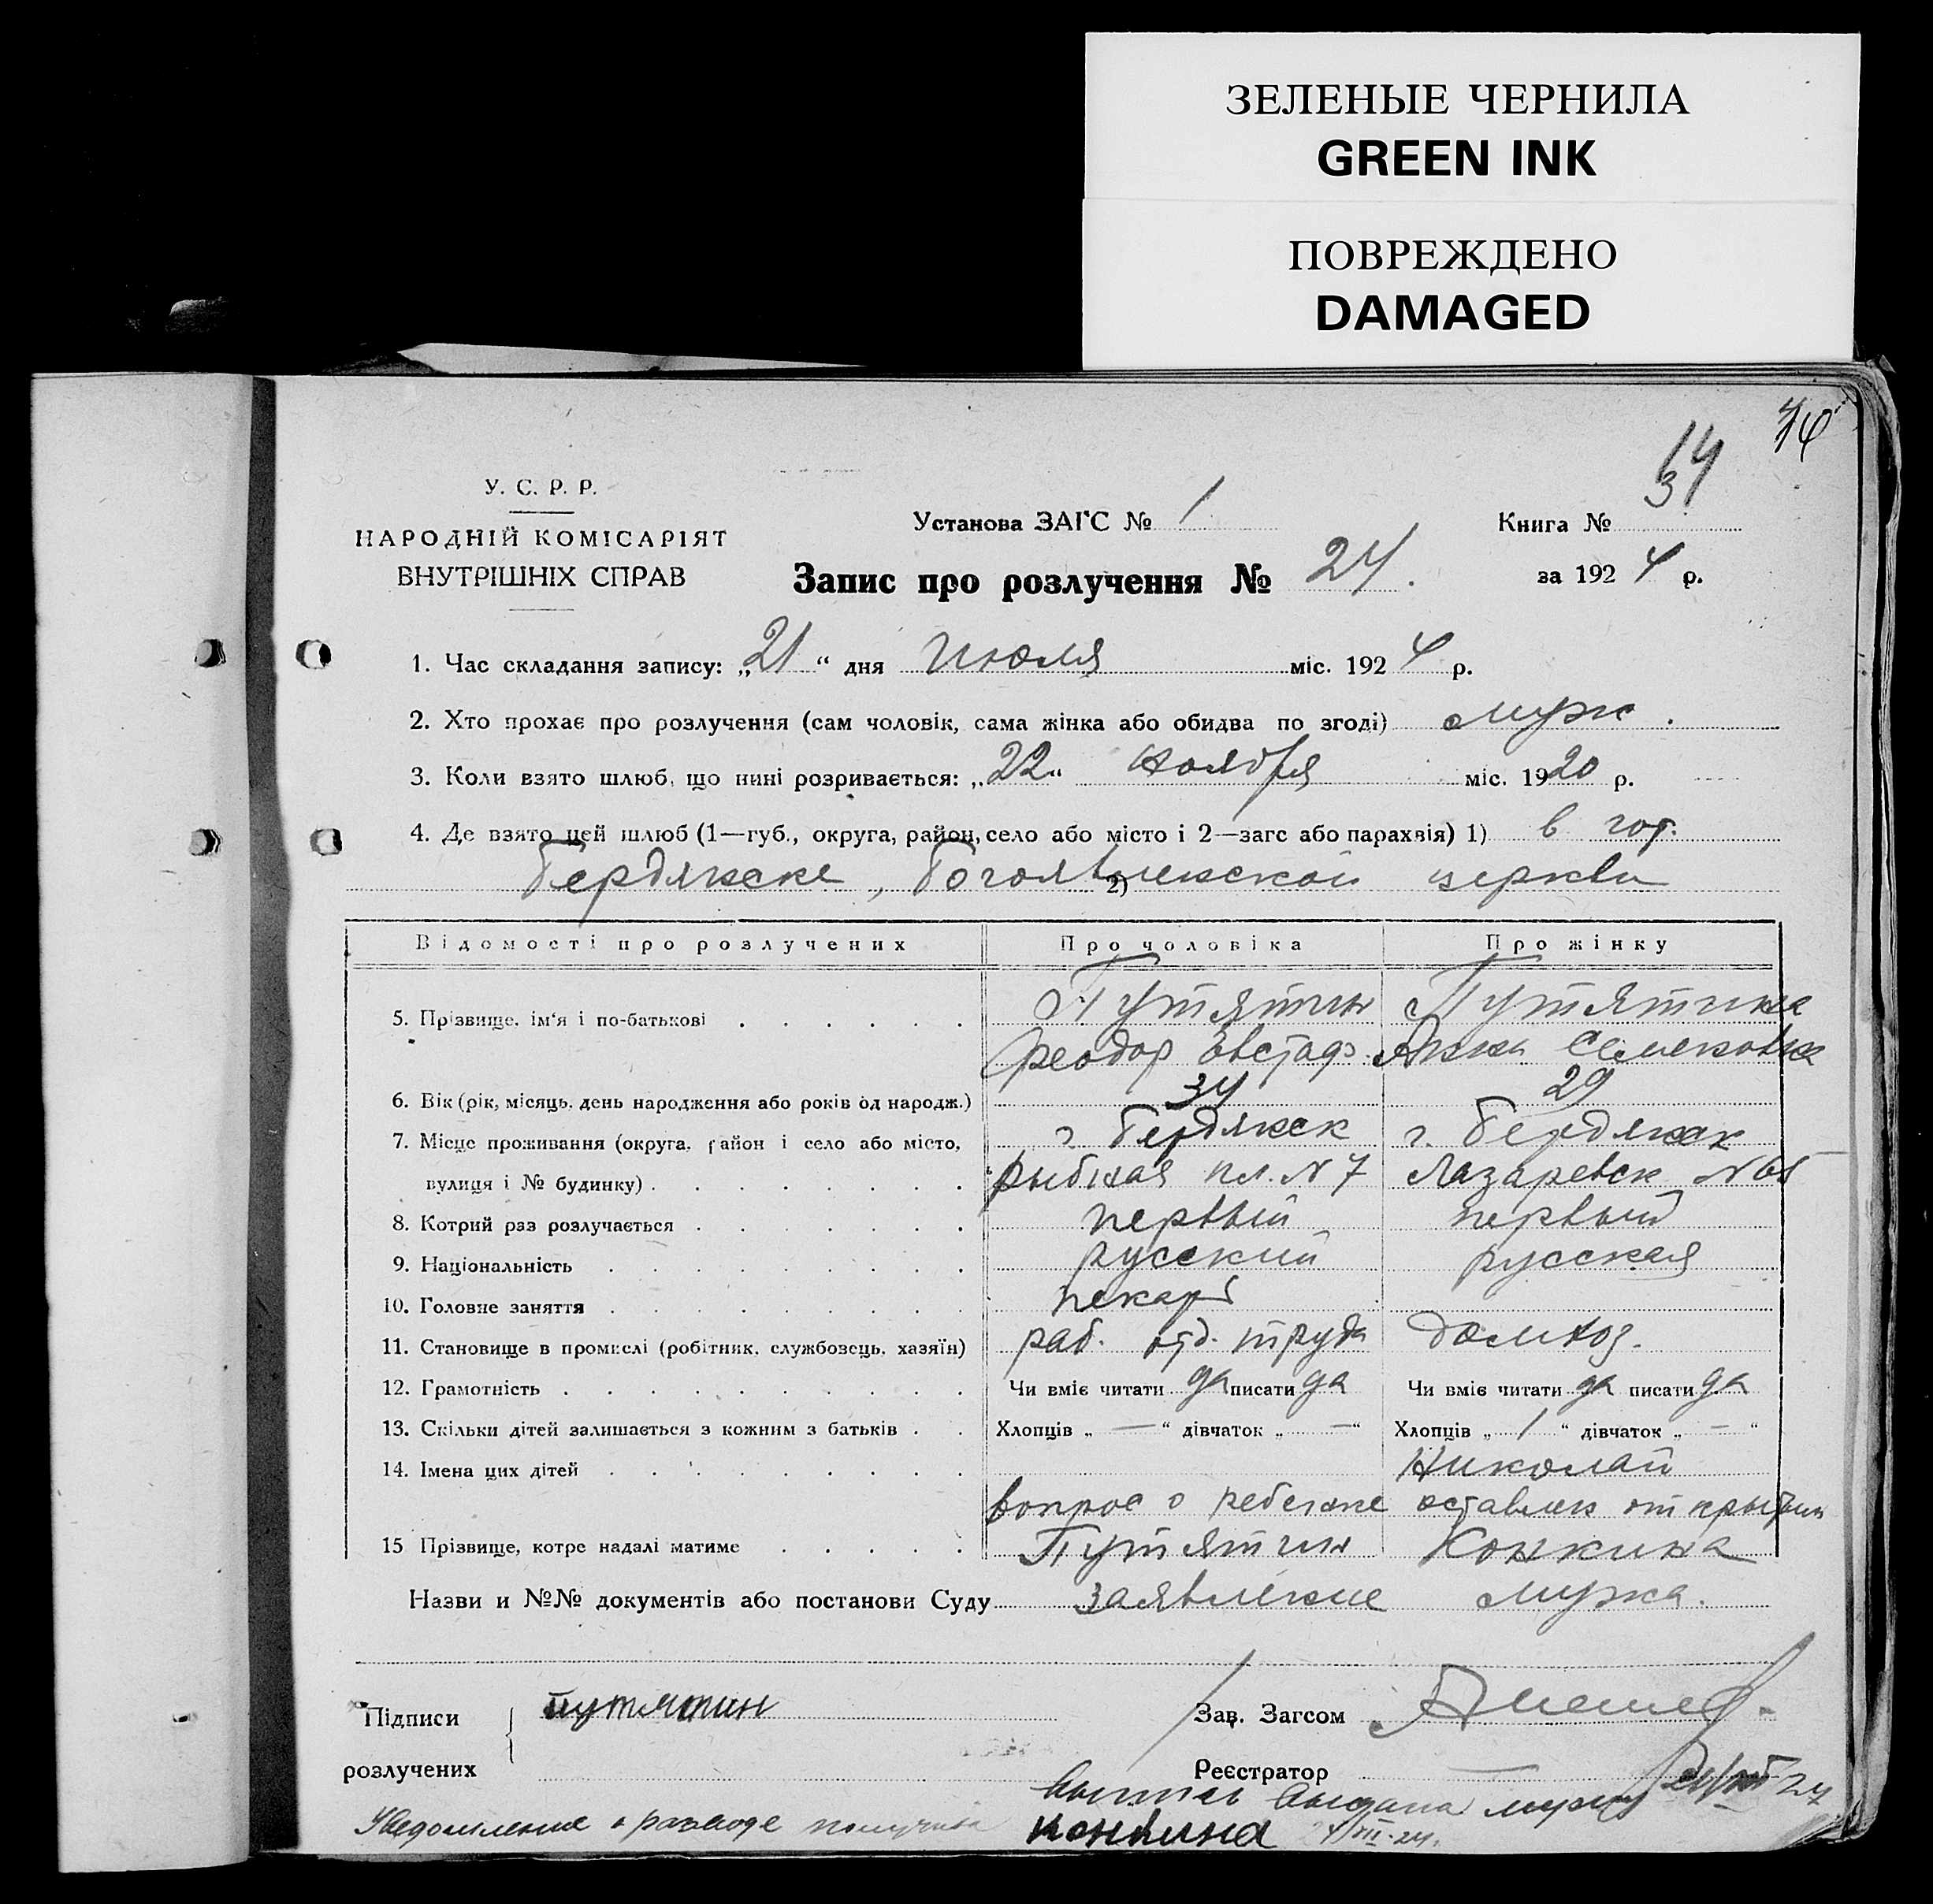 ЗЕЛЕНЫЕ ЧЕРНИЛА
GREEN INK
ПОВРЕЖДЕНО
DAMAGED
У. С. Р. Р.
НАРОДНІЙ КОМІСАРІЯТ
ВНУТРІШНІХ СПРАВ
Установа ЗАГС № 1
Книга №
Запис про розлучення № 24.
за 1924 р.
1. Час складання запису: „21“ дня Июля міс. 1924 р.
2. Хто прохає про розлучення (сам чоловік, сама жінка або обидва по згоді) муж.
3. Коли взято шлюб, що нині розривається: „22“ Ноября міс. 1920 р.
4. Де взято цей шлюб (1—губ., округа, район, село або місто і 2—загс або парахвія) 1) в гор.
Бердянске, Богоявленской 2) церкви
Відомості про розлучених Про чоловіка Про жінку
5. Прізвище, ім‘я і по-батькові Путятин Путятина
Феодор Евстаф. Анна Семеновна
6. Вік (рік, місяць, день народження або років од народж.) 34 29
7. Місце проживання (округа, район і село або місто, г. Бердянск г. Бердянск
вулиця і № будинку) Рыбная пл. N 7 Лазаревск N 65
8. Котрий раз розлучається первый первый
9. Національність русский русская
10. Головне заняття пекарь
11. Становище в промислі (робітник, службовець, хазяїн) раб. отд. труда домхоз.
12. Грамотність Чи вміє читати да писати да Чи вміє читати да писати да
13. Скільки дітей залишається з кожним з батьків Хлопців „ — “ дівчаток „ — “ Хлопців „ 1 “ дівчаток „ — “
14. Імена цих дітей Николай
вопрос о ребенке оставлен открытым
15 Прізвище, котре надалі матиме Путятин Конкина
Назви и №№ документів або постанови Суду заявление мужа.
Підписи путятин Зав. Загсом
розлучених Реєстратор
выпись выдана мужу
Уведомление о разводе получила Конкина